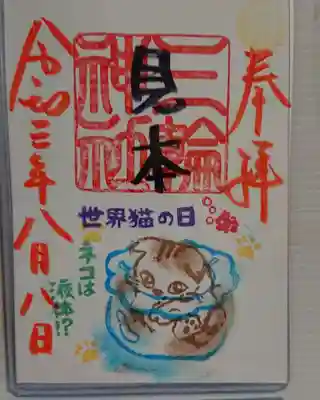 奉拝
三輪神社
見本
令和三年八月八日
世界猫の日
ネコは
液体!?